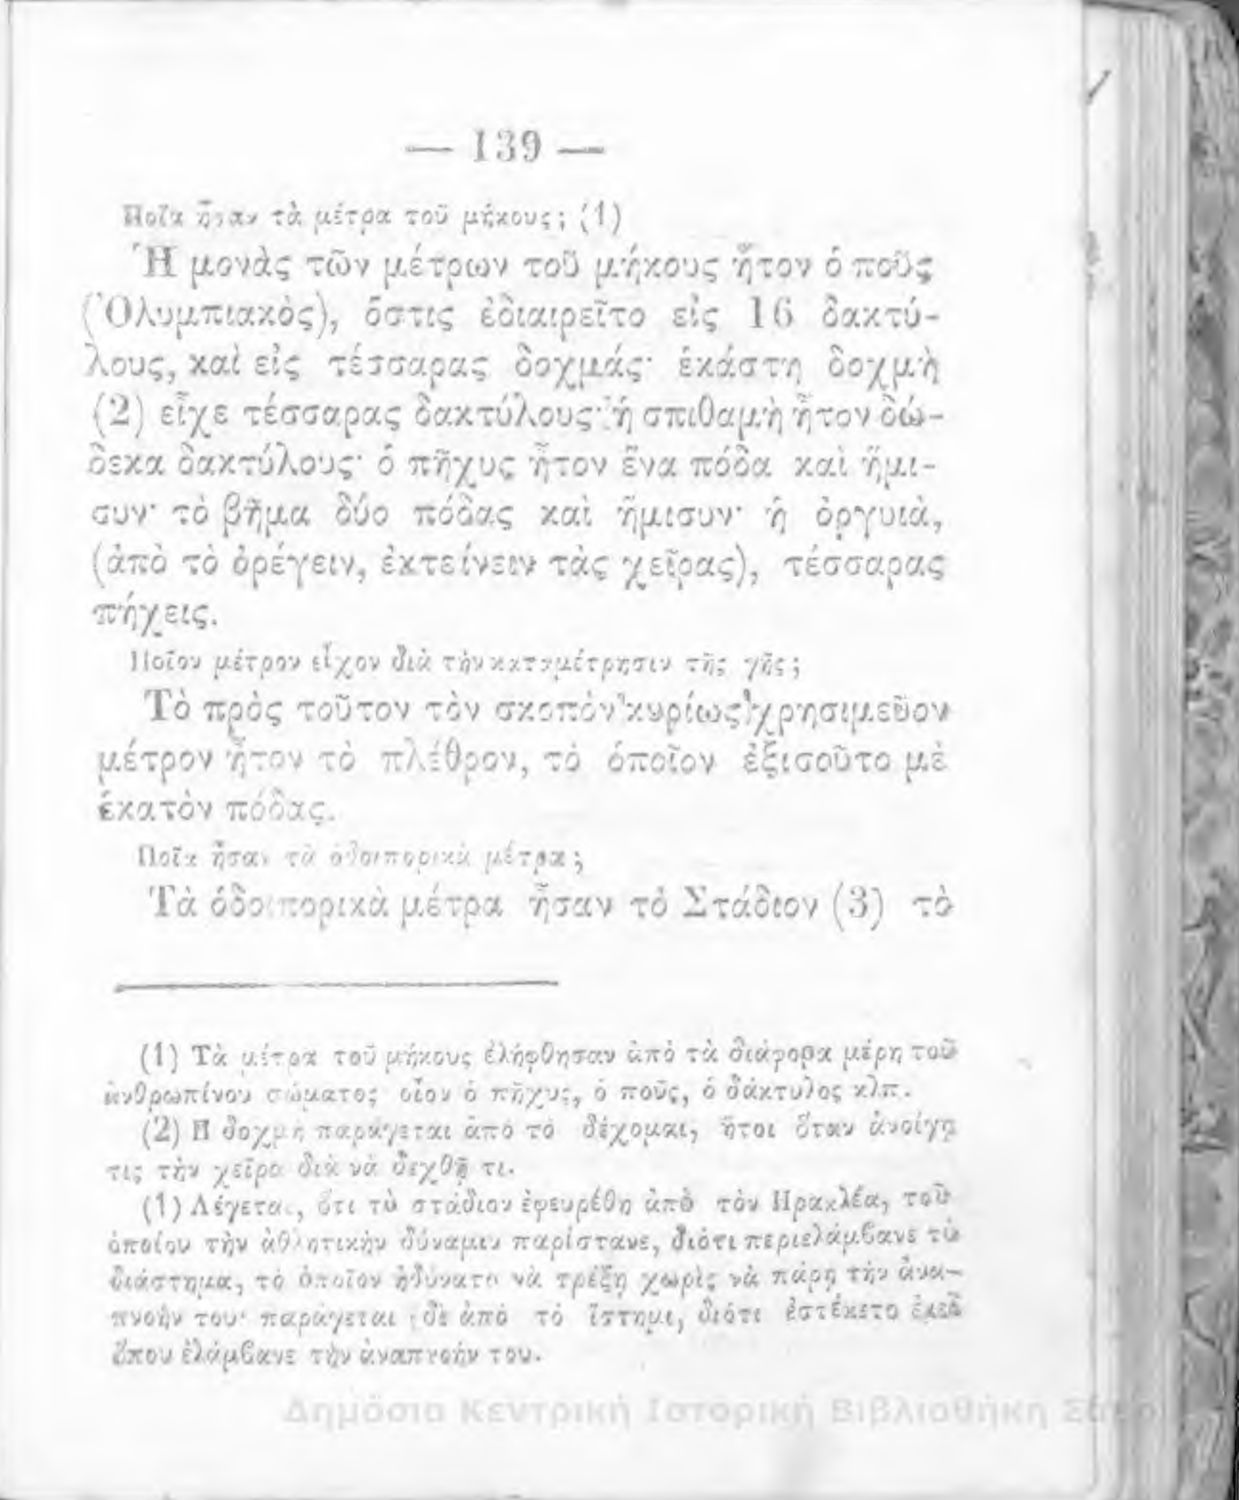 — 139 —
Ποῖα ἦσαν τὰ μέτρα τοῦ μήκους; (1)
Ἡ μονὰς τῶν μέτρων τοῦ μήκους ἦτον ὁ ποῦς
(Ὀλυμπιακὸς), ὅστις ἐδιαιρεῖτο εἰς 16 δακτύ-
λους, καὶ εἰς τέσσαρας δοχμάς· ἑκάστη δοχμὴ
(2) εἶχε τέσσαρας δακτύλους· ἡ σπιθαμὴ ἦτον δώ-
δεκα δακτύλους· ὁ πῆχυς ἦτον ἕνα πόδα καὶ ἥμι-
συν· τὸ βῆμα δύο πόδας καὶ ἥμισυν· ἡ ὀργυιὰ,
(ἀπὸ τὸ ὀρέγειν, ἐκτείνειν τὰς χεῖρας), τέσσαρας
πήχεις.
Ποῖον μέτρον εἶχον διὰ τὴν καταμέτρησιν τῆς γῆς;
Τὸ πρὸς τοῦτον τὸν σκοπὸν κυρίως χρησιμεῦον
μέτρον ἦτον τὸ πλέθρον, τὸ ὁποῖον ἐξισοῦτο μὲ
ἑκατὸν πόδας.
Ποῖα ἦσαν τὰ ὁδοιπορικὰ μέτρα;
Τὰ ὁδοιπορικὰ μέτρα ἦσαν τὸ Στάδιον (3) τὸ
(1) Τὰ μέτρα τοῦ μήκους ἐλήφθησαν ἀπὸ τὰ διάφορα μέρη τοῦ
ἀνθρωπίνου σώματος οἷον ὁ πῆχυς, ὁ ποῦς, ὁ δάκτυλος κλπ.
(2) Η δοχμὴ παράγεται ἀπὸ τὸ δέχομαι, ἤτοι ὅταν ἀνοίγῃ
τις τὴν χεῖρα διὰ νὰ δεχθῇ τι.
(1) Λέγεται, ὅτι τὸ στάδιον ἐφευρέθη ἀπὸ τὸν Ηρακλέα, τοῦ
ὁποίου τὴν ἀθλητικὴν δύναμιν παρίστανε, διότι περιελάμβανε τὸ
διάστημα, τὸ ὁποῖον ἠδύνατο νὰ τρέξῃ χωρὶς νὰ πάρῃ τὴν ἀνα-
πνοήν του· παράγεται δὲ ἀπὸ τὸ ἵστημι, διότι ἐστέκετο ἐκεῖ
ὅπου ἐλάμβανε τὴν ἀναπνοήν του.
Δημόσια Κεντρική Ιστορική Βιβλιοθήκη